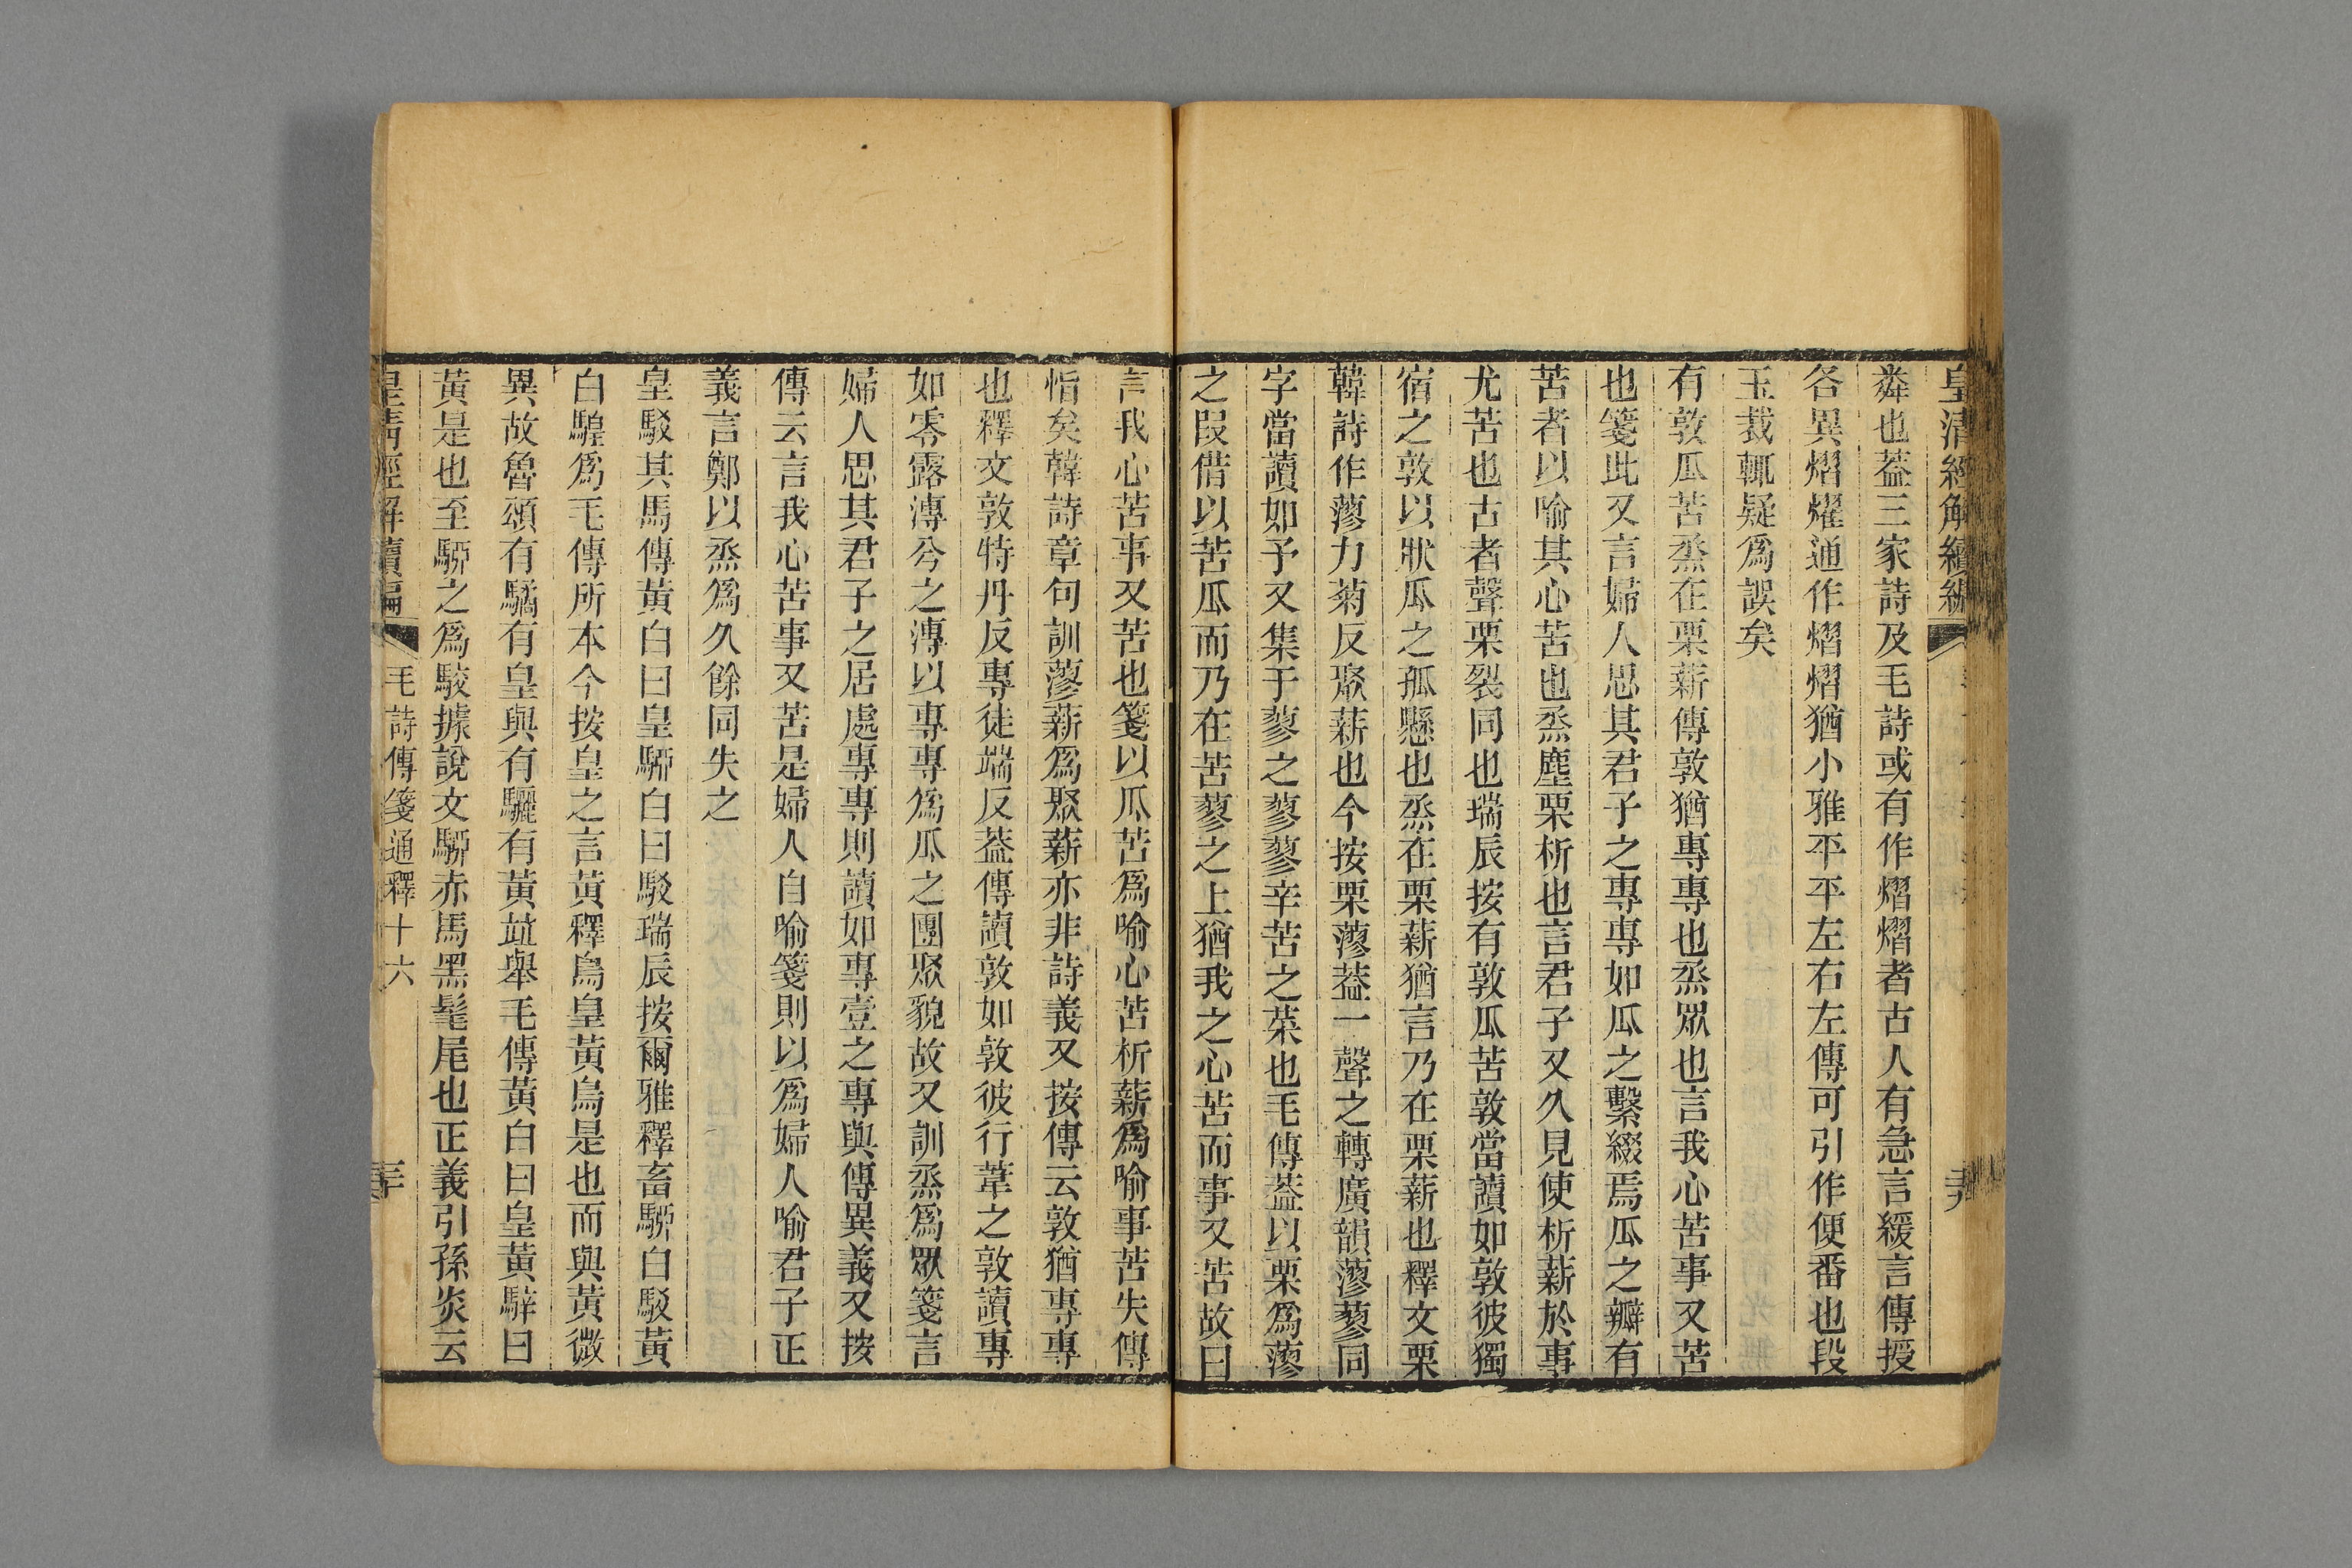 皇清經解續編
粦也葢三家詩及毛詩或有作熠熠者古人有急言緩言傳授
各異熠燿通作熠熠猶小雅平平左右左傳可引作便番也段
玉裁輒疑爲誤矣
有敦瓜苦烝在栗薪傳敦猶專專也烝眾也言我心苦事又苦
也箋此又言婦人思其君子之專專如瓜之繫綴焉瓜之瓣有
苦者以喻其心苦也烝塵栗析也言君子又久見使析薪於事
尤苦也古者聲栗裂同也瑞辰按有敦瓜苦敦當讀如敦彼獨
宿之敦以狀瓜之孤懸也烝在栗薪猶言乃在栗薪也釋文栗
韓詩作蓼力菊反聚薪也今按栗蓼葢一聲之轉廣韻蓼蓼同
字當讀如予又集于蓼之蓼蓼辛苦之菜也毛傳葢以栗爲蓼
之叚借以苦瓜而乃在苦蓼之上猶我之心苦而事又苦故曰
言我心苦事又苦也箋以瓜苦爲喻心苦析薪爲喻事苦失傳
恉矣韓詩章句訓蓼薪爲聚薪亦非詩義又按傳云敦猶專專
也釋文敦特丹反專徒端反葢傳讀敦如敦彼行葦之敦讀專
如零露漙兮之漙以專專爲瓜之團聚貌故又訓烝爲眾箋言
婦人思其君子之居處專專則讀如專壹之專與傳異義又按
傳云言我心苦事又苦是婦人自喻箋則以爲婦人喻君子正
義言鄭以烝爲久餘同失之
皇駁其馬傳黃白曰皇騢白曰駁瑞辰按爾雅釋畜騢白駁黃
白騜爲毛傳所本今按皇之言黃釋鳥皇黃鳥是也而與黃微
異故魯頌有驈有皇與有驪有黃竝舉毛傳黃白曰皇黃騂曰
黃是也至騮之爲駁據說文騮赤馬黑髦尾也正義引孫炎云
皇清經解續編 毛詩傳箋通釋十六 三十